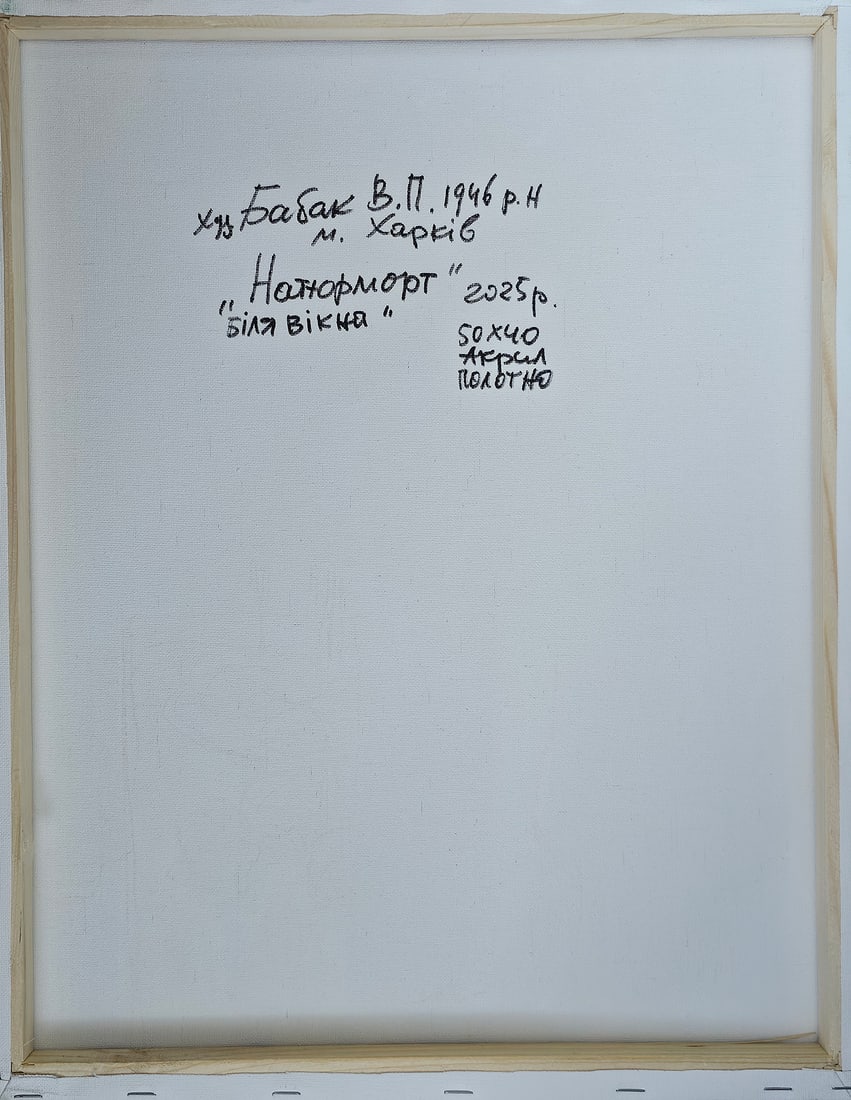 худ Бабак В.П. 1946 р.н
м. Харків
„Натюрморт" 2025р.
"Біля вікна"
50х40
Акрил
Полотно